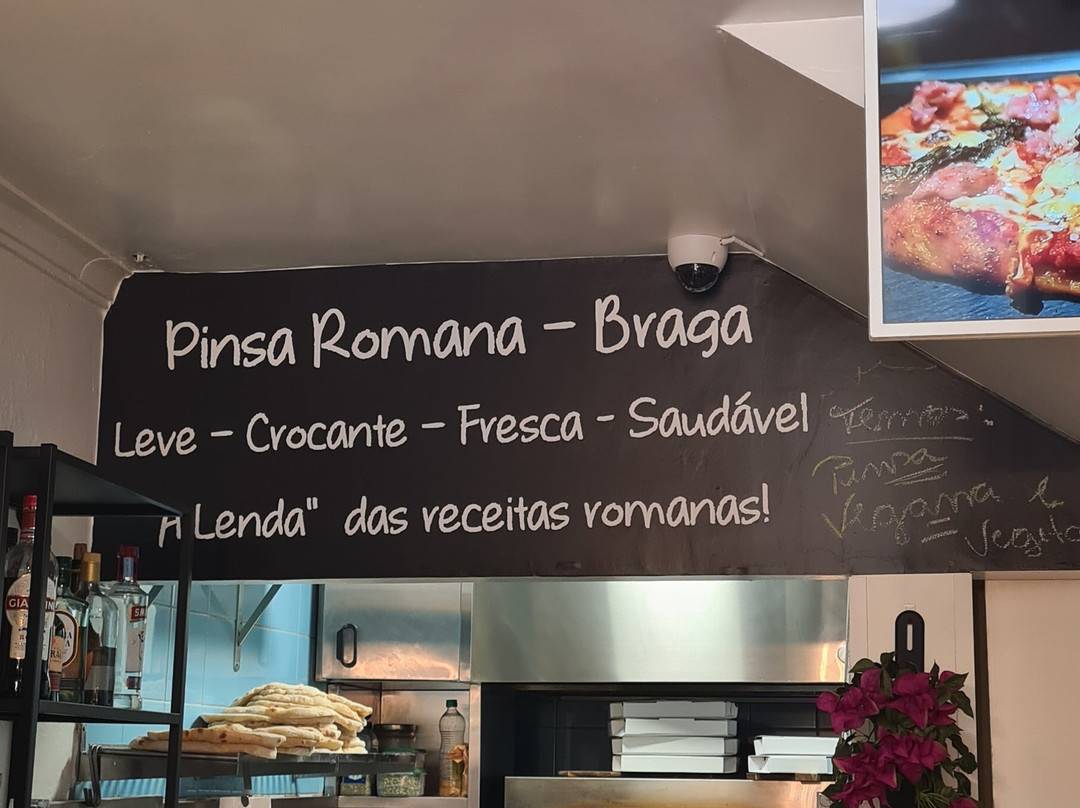 Pinsa Romana - Braga
Leve - Crocante - Fresca - Saudável
A Lenda" das receitas romanas!
Temos:
Pinsa
Vegana e